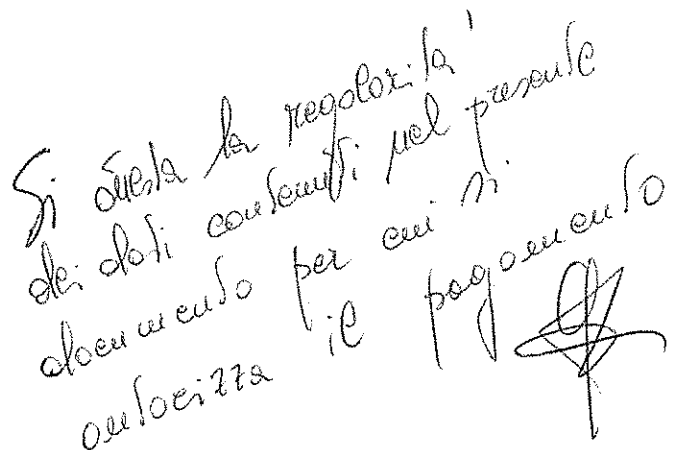 Si attesta la regolarità
dei dati contenuti nel presente
documento per cui si
autorizza il pagamento